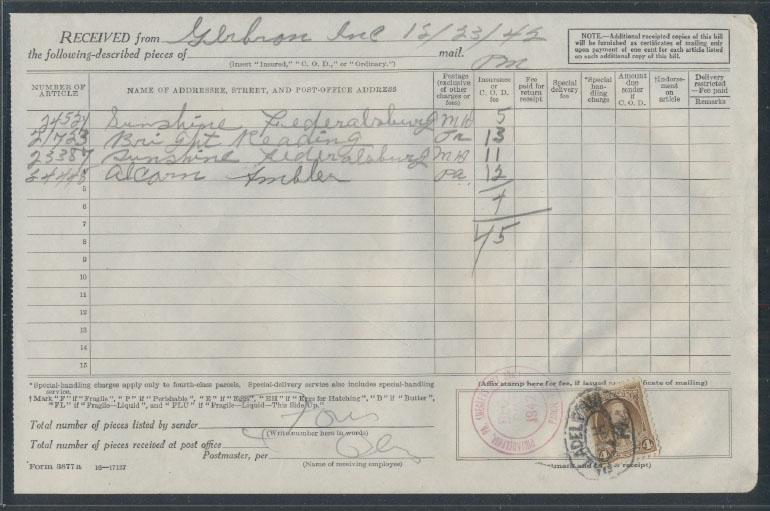 RECEIVED from Gerbron Inc 12/23/42
the following-described pieces of mail. PM
(Insert "Insured," "C. O. D.," or "Ordinary.")
NOTE.—Additional receipted copies of this bill
will be furnished as certificates of mailing only
upon payment of one cent for each article listed
on each additional copy of this bill.
NUMBER OF ARTICLE
NAME OF ADDRESSEE, STREET, AND POST-OFFICE ADDRESS
Postage (exclusive of other charges or fees)
Insurance or C. O. D. fee
Fee paid for return receipt
Special delivery fee
*Special handling charge
Amount due sender if C. O. D.
†Indorsement on article
Delivery restricted —Fee paid
Remarks
Sunshine Federalsburg Md 5
21723 Bright Reading Pa 13
23387 Sunshine Federalsburg Md 11
24448 Alcorn Ambler Pa 12
5
6 4
7
8 45
9
10
11
12
13
14
15
*Special-handling charges apply only to fourth-class parcels. Special-delivery service also includes special-handling
service.
†Mark "F" if "Fragile", "P" if "Perishable", "E" if "Eggs", "EH" if "Eggs for Hatching", "B" if "Butter",
"FL" if "Fragile—Liquid", and "FLU" if "Fragile—Liquid—This Side Up."
(Affix stamp here for fee, if issued as certificate of mailing)
Total number of pieces listed by sender Four
(Write number here in words)
Total number of pieces received at post office
Postmaster, per
(Name of receiving employee)
Form 3877 a 16—17127
PHILADELPHIA, PA.
1942
4